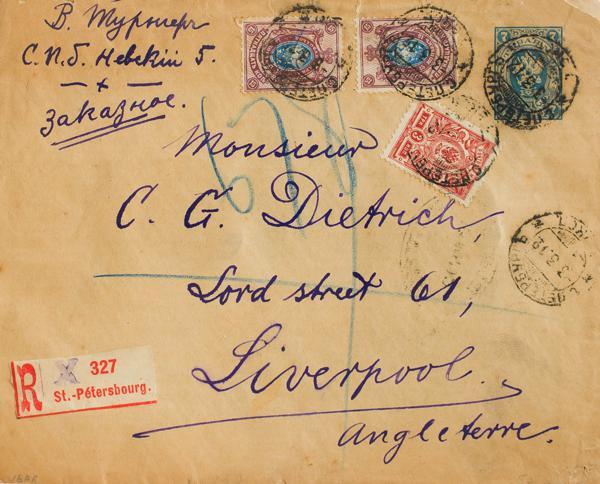 В. Турнер
С.П.Б. Невскій 5.
Заказное.
Monsieur
C. G. Dietrich,
Lord street 61,
Liverpool.
Angleterre.
R X 327
St.-Pétersbourg.
С.ПЕТЕРБУРГЪ
3.5.12